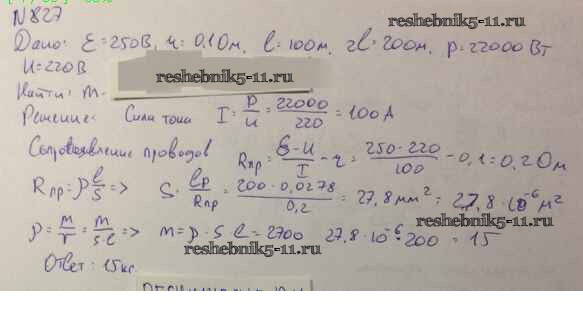 N 827
reshebnik5-11.ru
Дано: Ɛ=250В, r=0.1Ом, l=100м, 2l=200м, P=22000 Вт
U=220В
reshebnik5-11.ru
Найти: m-
Решение: Сила тока I = P/U = 22000/220 = 100 А
reshebnik5-11.ru
Сопротивление проводов Rпр = Ɛ-U/I - r = 250-220/100 - 0,1 = 0,2 Ом
Rпр = ρ l/S => S = lρ/Rпр = 200·0,0278/0,2 = 27,8 мм² = 27,8·10⁻⁶ м²
ρ = m/V = m/S·l => m = ρ·S·l = 2700 27,8·10⁻⁶·200 = 15
reshebnik5-11.ru
Ответ: 15 кг.